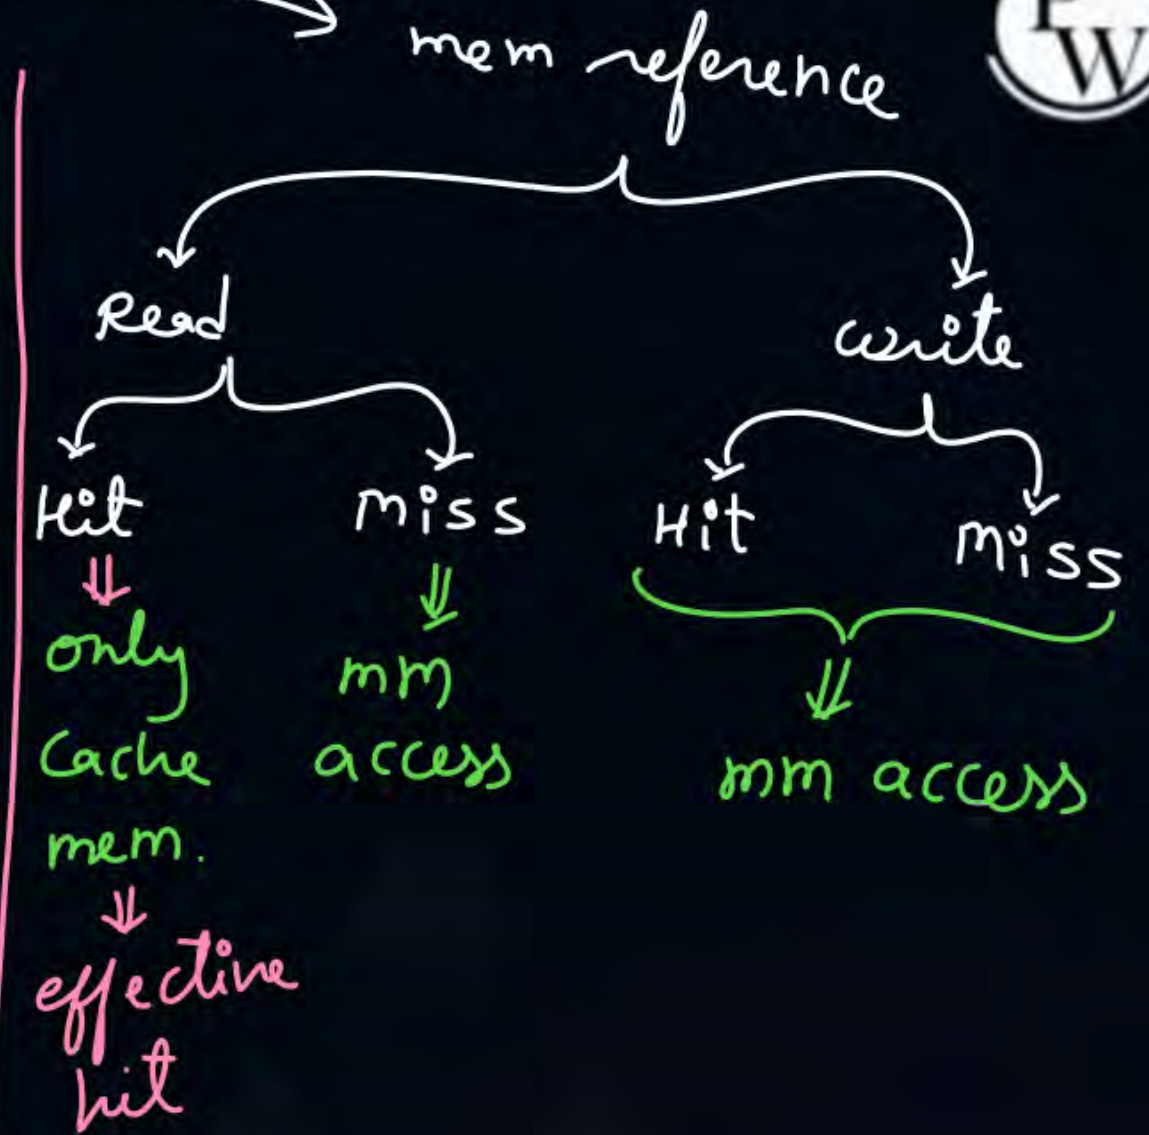 mem reference
P
W
Read
write
Hit
miss
Hit
miss
only
Cache
mem.
mm
access
mm access
effective
hit